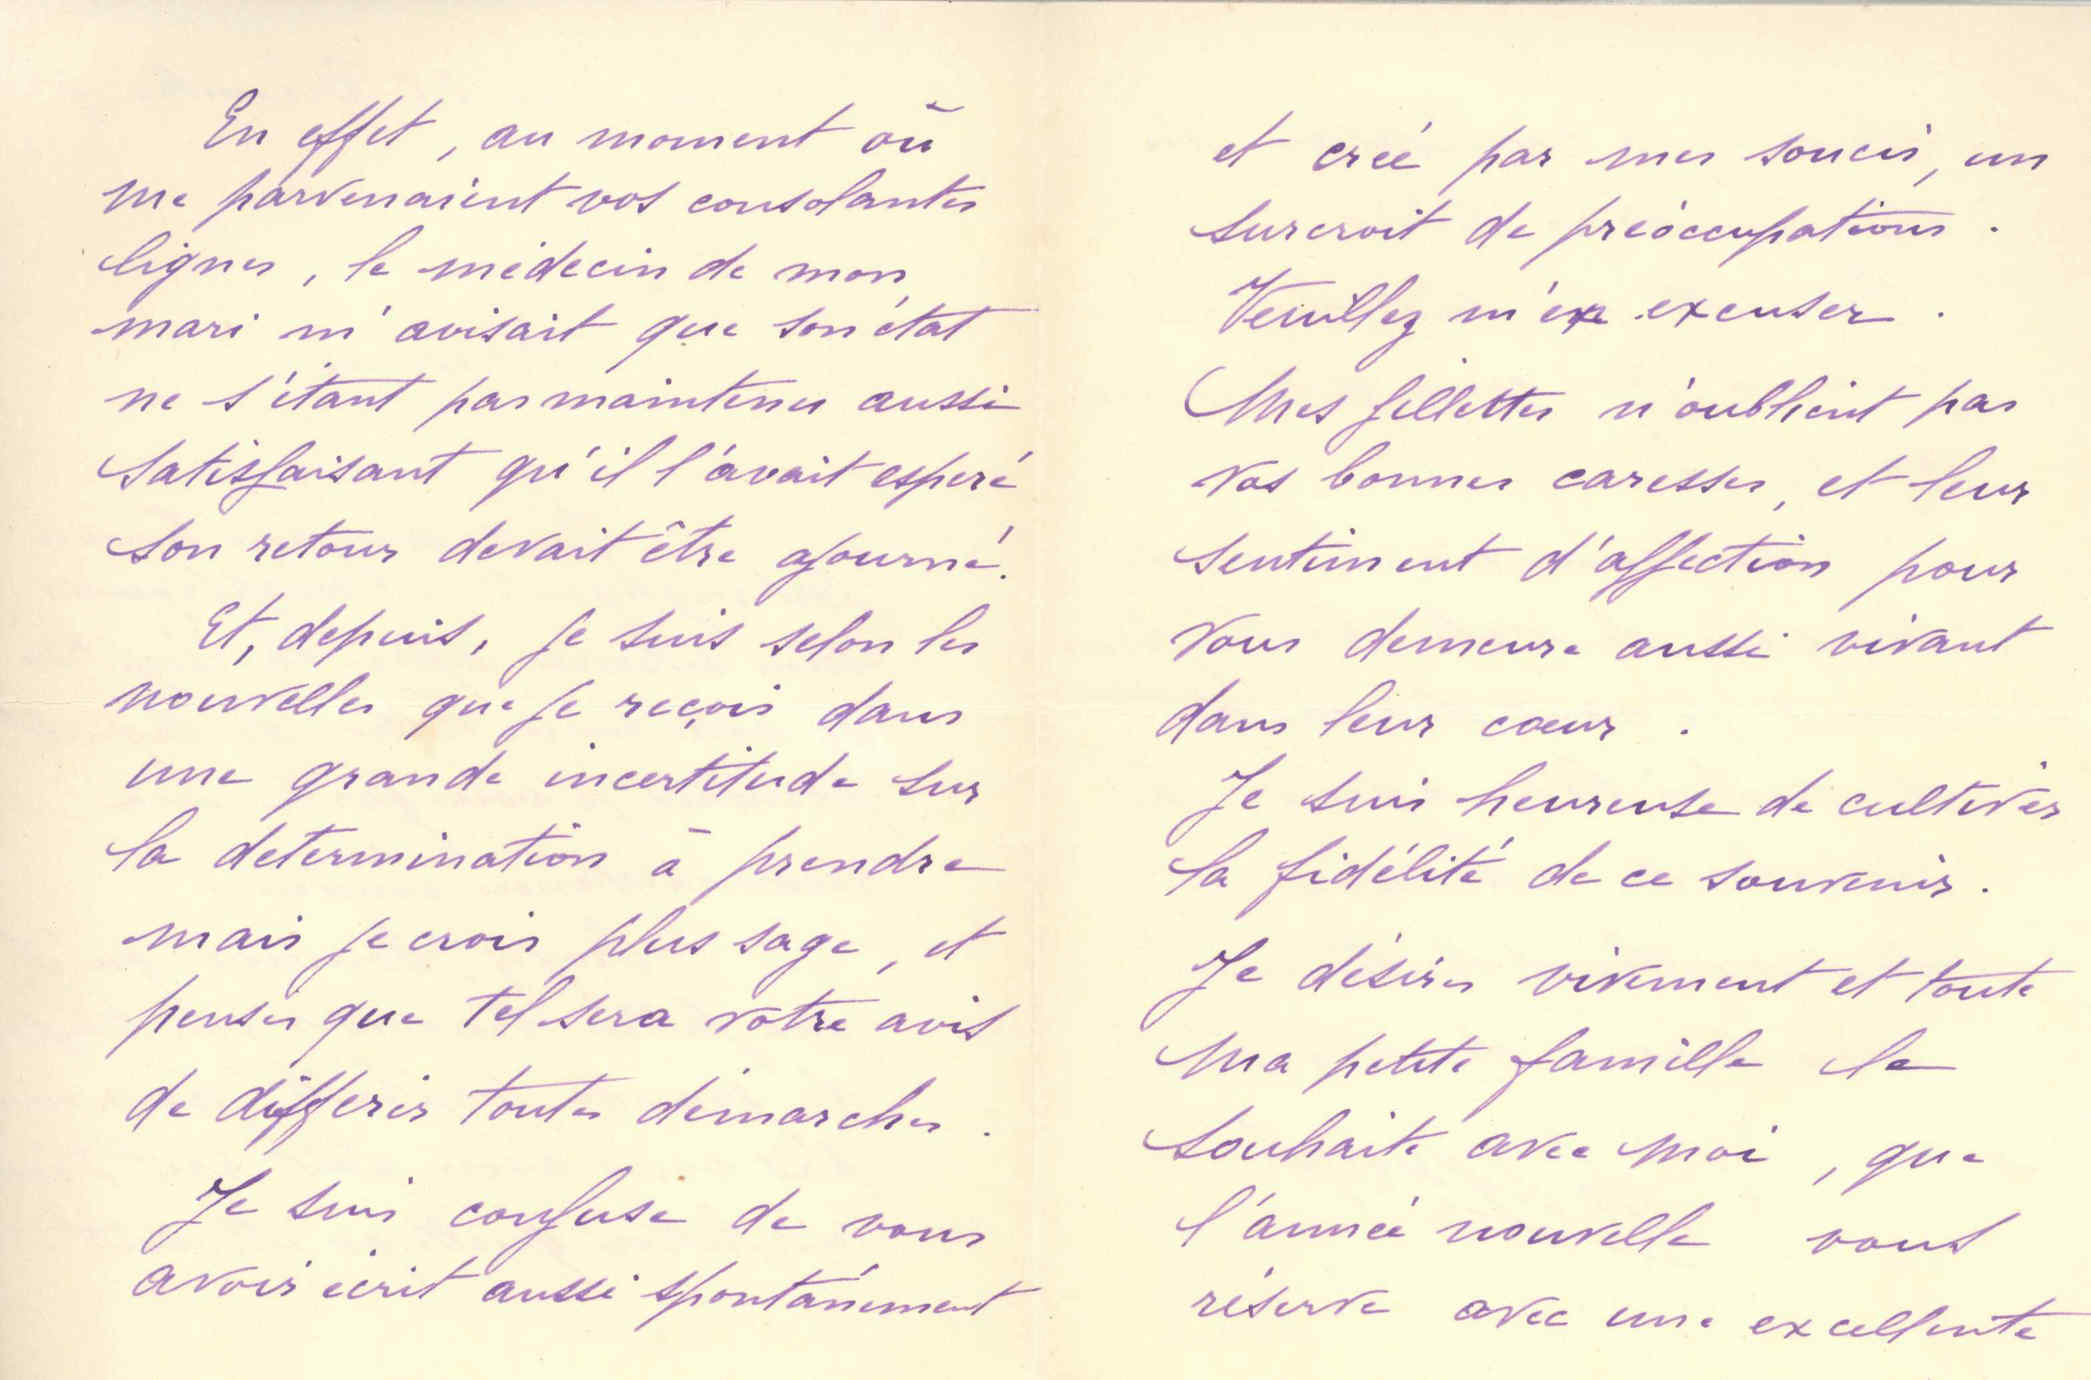 En effet, au moment où
me parvenaient vos consolantes
lignes, le médecin de mon
mari m'avisait que son état
ne s'étant pas maintenu aussi
satisfaisant qu'il l'avait esperé
son retour devait être ajourné.
Et, depuis, je suis selon les
nouvelles que je reçois dans
une grande incertitude sur
la determination à prendre
mais je crois plus sage, et
penser que tel sera votre avis
de différer toutes démarches.
Je suis confuse de vous
avoir écrit aussi spontanément
et créé par mes soucis, un
surcroit de préoccupations.
Veuillez m'en excuser.
Mes fillettes n'oublient pas
vos bonnes caresses, et leur
sentiment d'affection pour
vous demeure aussi vivant
dans leur cœur.
Je suis heureuse de cultiver
la fidélité de ce souvenir.
Je désire vivement et toute
ma petite famille le
souhaite avec moi, que
l'année nouvelle vous
réserve avec une excellente